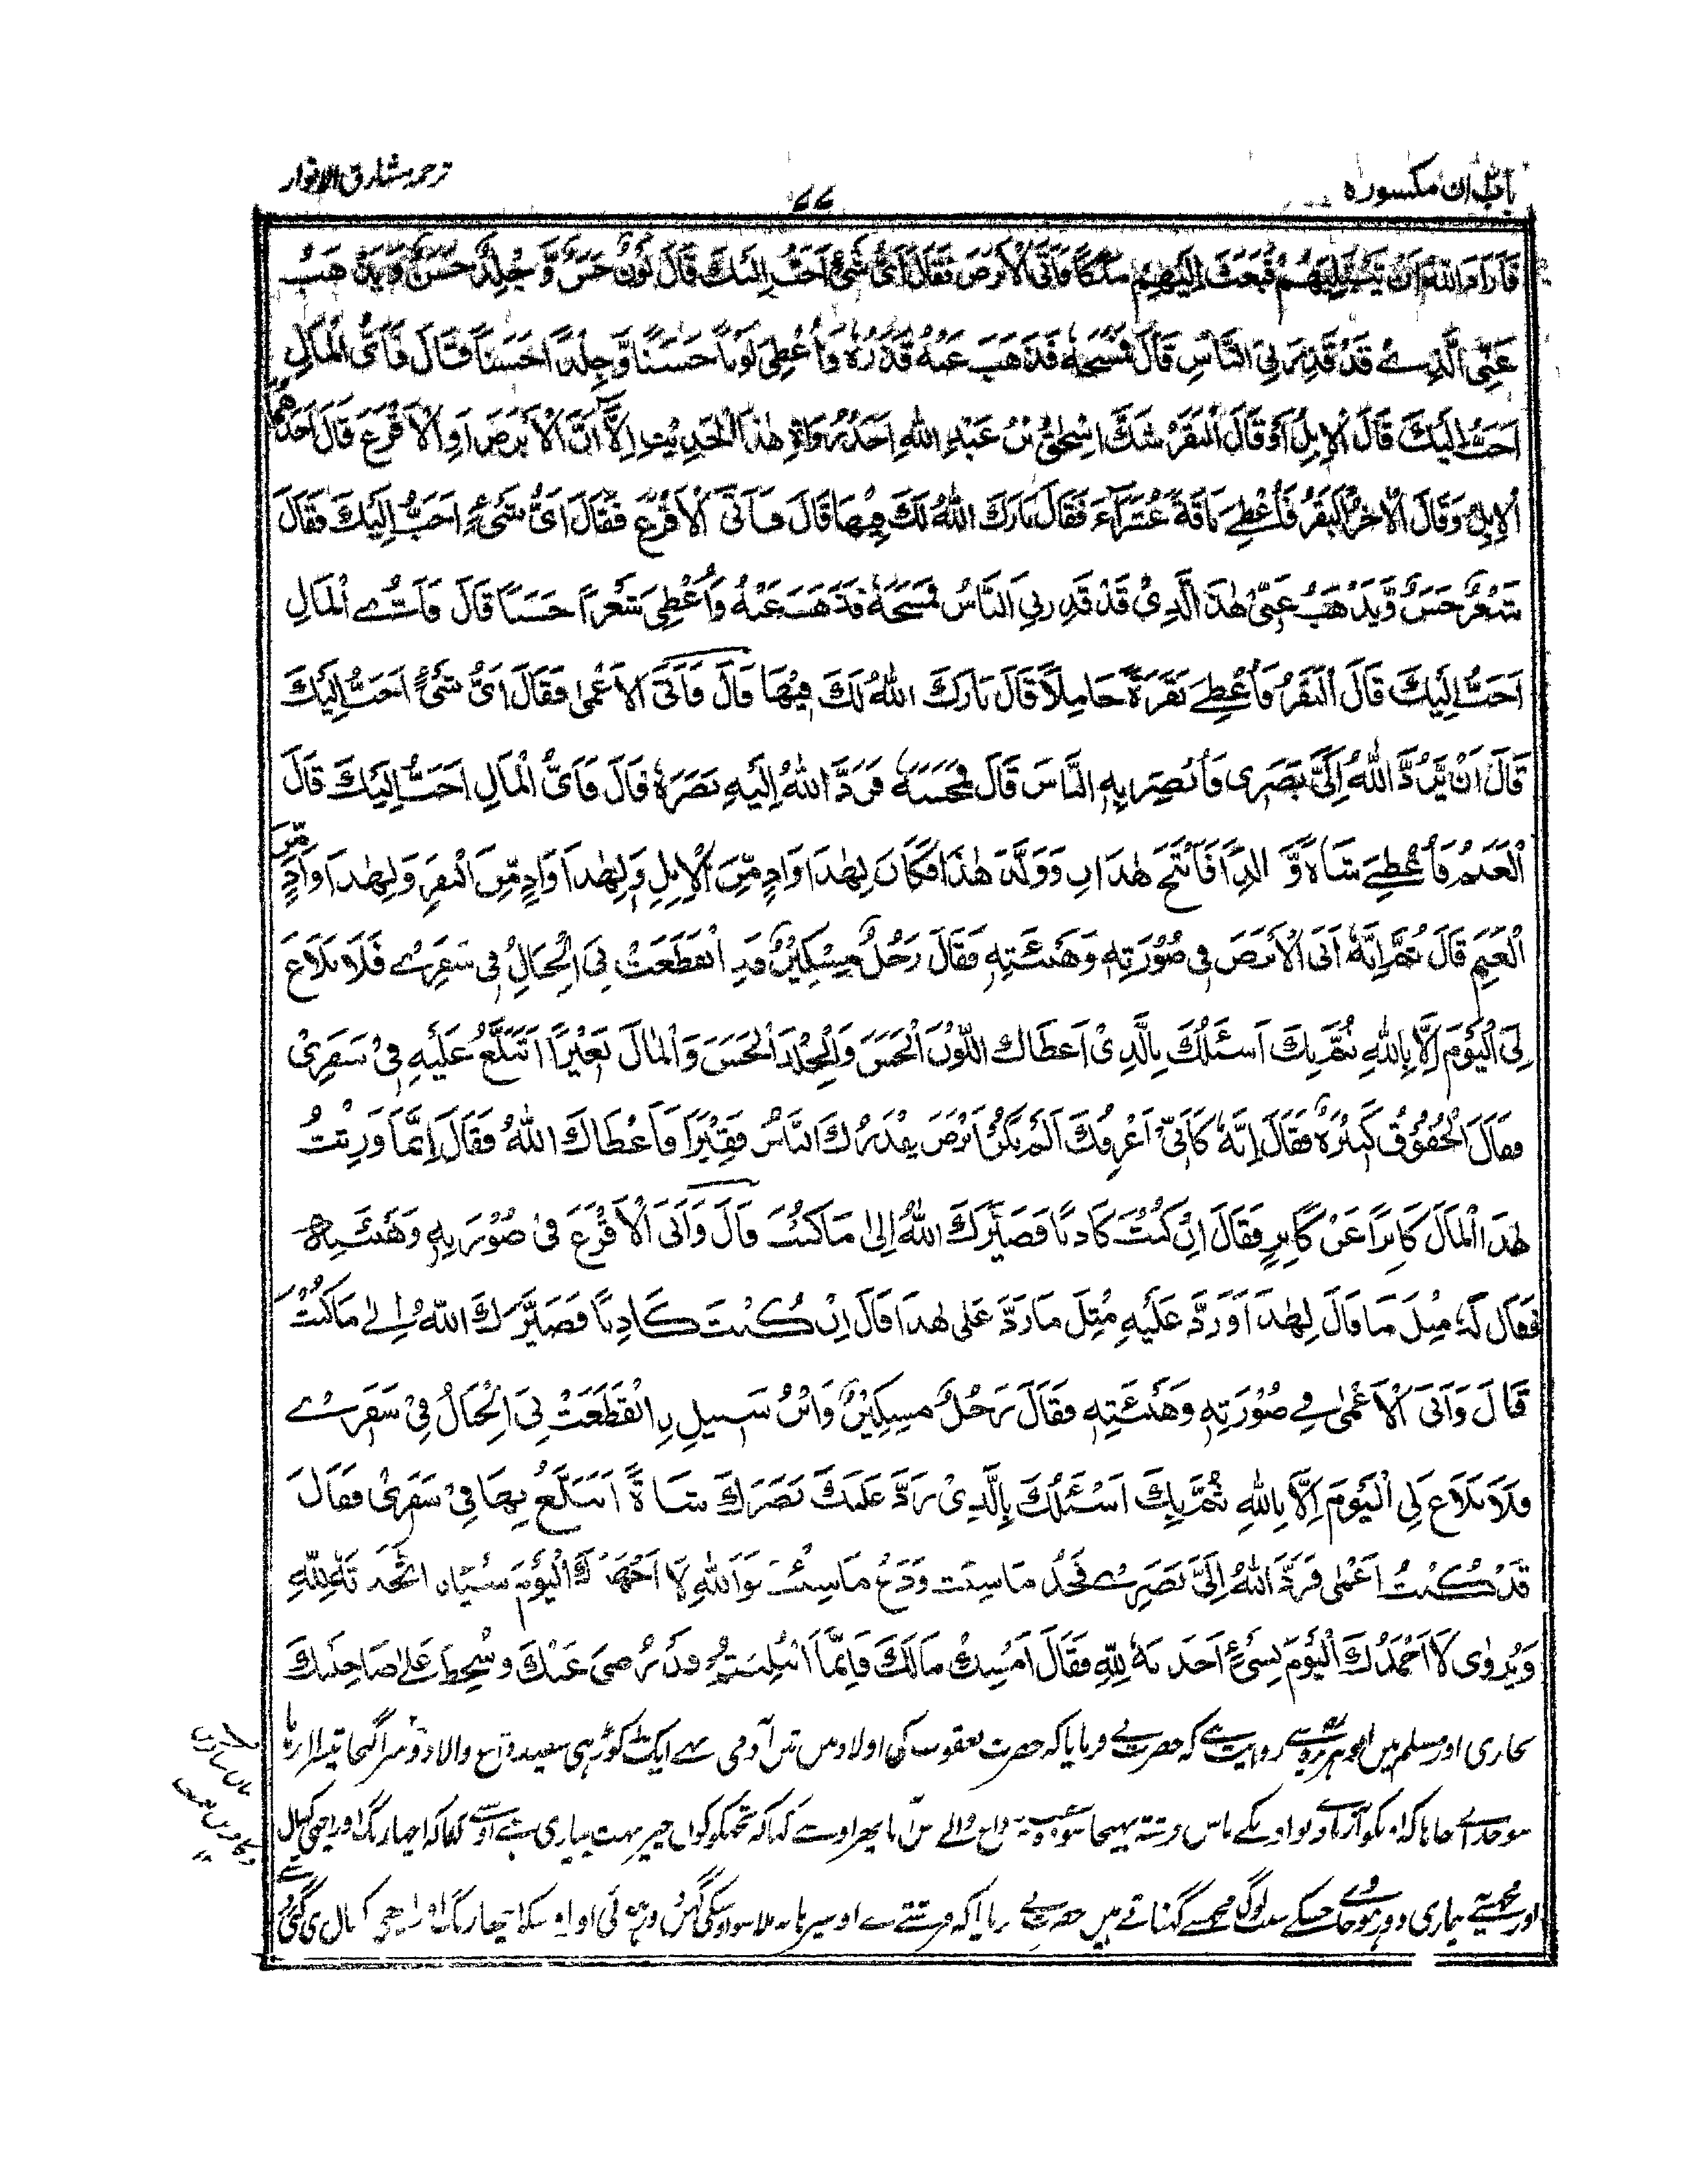 باب ان مکسورہ
۷۷
ترجمہ مشارق الانوار
فَاَرَادَ اللهُ اَنْ يَّبْتَلِيَهُمْ فَبَعَثَ اِلَيْهِمْ مَلَكًا فَاَتَى الْاَبْرَصَ فَقَالَ اَىُّ شَىْءٍ اَحَبُّ اِلَيْكَ قَالَ لَوْنٌ حَسَنٌ وَّجِلْدٌ حَسَنٌ وَّيَذْهَبُ
عَنِّى الَّذِىْ قَدْ قَذِرَنِىَ النَّاسُ قَالَ فَمَسَحَهٗ فَذَهَبَ عَنْهُ قَذَرُهٗ وَاُعْطِىَ لَوْنًا حَسَنًا وَّجِلْدًا حَسَنًا قَالَ فَاَىُّ الْمَالِ
اَحَبُّ اِلَيْكَ قَالَ الْاِبِلُ اَوْ قَالَ الْبَقَرُ شَكَّ اِسْحٰقُ بْنُ عَبْدِ اللهِ اَحَدُ رُوَاةِ هٰذَا الْحَدِيْثِ اِلَّا اَنَّ الْاَبْرَصَ اَوِ الْاَقْرَعَ قَالَ اَحَدُهُمَا
الْاِبِلُ وَقَالَ الْاٰخَرُ الْبَقَرُ فَاُعْطِىَ نَاقَةً عُشَرَآءَ فَقَالَ بَارَكَ اللهُ لَكَ فِيْهَا قَالَ فَاَتَى الْاَقْرَعَ فَقَالَ اَىُّ شَىْءٍ اَحَبُّ اِلَيْكَ فَقَالَ
شَعْرٌ حَسَنٌ وَّيَذْهَبُ عَنِّىْ هٰذَا الَّذِىْ قَدْ قَذِرَنِىَ النَّاسُ فَمَسَحَهٗ فَذَهَبَ عَنْهُ وَاُعْطِىَ شَعْرًا حَسَنًا قَالَ فَاَىُّ الْمَالِ
اَحَبُّ اِلَيْكَ قَالَ الْبَقَرُ فَاُعْطِىَ بَقَرَةً حَامِلًا قَالَ بَارَكَ اللهُ لَكَ فِيْهَا قَالَ فَاَتَى الْاَعْمٰى فَقَالَ اَىُّ شَىْءٍ اَحَبُّ اِلَيْكَ
قَالَ اَنْ يَّرُدَّ اللهُ اِلَىَّ بَصَرِى فَاُبْصِرَ بِهِ النَّاسَ قَالَ فَمَسَحَهٗ فَرَدَّ اللهُ اِلَيْهِ بَصَرَهٗ قَالَ فَاَىُّ الْمَالِ اَحَبُّ اِلَيْكَ قَالَ
الْغَنَمُ فَاُعْطِىَ شَاةً وَّالِدًا فَاَنْتَجَ هٰذَانِ وَوَلَّدَ هٰذَا فَكَانَ لِهٰذَا وَادٍ مِّنَ الْاِبِلِ وَلِهٰذَا وَادٍ مِّنَ الْبَقَرِ وَلِهٰذَا وَادٍ مِّنَ
الْغَنَمِ قَالَ ثُمَّ اِنَّهٗ اَتَى الْاَبْرَصَ فِى صُوْرَتِهٖ وَهَيْئَتِهٖ فَقَالَ رَجُلٌ مِسْكِيْنٌ قَدِ انْقَطَعَتْ بِىَ الْحِبَالُ فِى سَفَرِىْ فَلَا بَلَاغَ
لِىَ الْيَوْمَ اِلَّا بِاللهِ ثُمَّ بِكَ اَسْئَلُكَ بِالَّذِىْ اَعْطَاكَ اللَّوْنَ الْحَسَنَ وَالْجِلْدَ الْحَسَنَ وَالْمَالَ بَعِيْرًا اَتَبَلَّغُ عَلَيْهِ فِىْ سَفَرِىْ
فَقَالَ الْحُقُوْقُ كَثِيْرَةٌ فَقَالَ اِنَّهٗ كَاَنِّىْ اَعْرِفُكَ اَلَمْ تَكُنْ اَبْرَصَ يَقْذَرُكَ النَّاسُ فَقِيْرًا فَاَعْطَاكَ اللهُ فَقَالَ اِنَّمَا وَرِثْتُ
هٰذَا الْمَالَ كَابِرًا عَنْ كَابِرٍ فَقَالَ اِنْ كُنْتَ كَاذِبًا فَصَيَّرَكَ اللهُ اِلٰى مَا كُنْتَ قَالَ وَاَتَى الْاَقْرَعَ فِىْ صُوْرَتِهٖ وَهَيْئَتِهٖ
فَقَالَ لَهٗ مِثْلَ مَا قَالَ لِهٰذَا وَرَدَّ عَلَيْهِ مِثْلَ مَا رَدَّ عَلٰى هٰذَا قَالَ اِنْ كُنْتَ كَاذِبًا فَصَيَّرَكَ اللهُ اِلٰى مَا كُنْتَ
قَالَ وَاَتَى الْاَعْمٰى فِى صُوْرَتِهٖ وَهَيْئَتِهٖ فَقَالَ رَجُلٌ مِسْكِيْنٌ وَابْنُ سَبِيْلٍ اِنْقَطَعَتْ بِىَ الْحِبَالُ فِىْ سَفَرِىْ
فَلَا بَلَاغَ لِىَ الْيَوْمَ اِلَّا بِاللهِ ثُمَّ بِكَ اَسْئَلُكَ بِالَّذِىْ رَدَّ عَلَيْكَ بَصَرَكَ شَاةً اَتَبَلَّغُ بِهَا فِىْ سَفَرِىْ فَقَالَ
قَدْ كُنْتُ اَعْمٰى فَرَدَّ اللهُ اِلَىَّ بَصَرِىْ فَخُذْ مَا شِئْتَ وَدَعْ مَا شِئْتَ فَوَاللهِ لَا اَجْهَدُكَ الْيَوْمَ شَيْئًا اَخَذْتَهٗ لِلّٰهِ
وَيُرْوٰى لَا اَحْمَدُكَ الْيَوْمَ بِشَىْءٍ اَخَذْتَهٗ لِلّٰهِ فَقَالَ اَمْسِكْ مَالَكَ فَاِنَّمَا ابْتُلِيْتُمْ فَقَدْ رُضِىَ عَنْكَ وَسُخِطَ عَلٰى صَاحِبَيْكَ
بخاری اور مسلم میں ابو ہریرہ سے روایت ہے کہ حضرت نے فرمایا کہ حضرت یعقوب کی اولاد میں تین آدمی تھے ایک کوڑھی سفید داغ والا دوسرا گنجا تیسرا
سو خدا نے چاہا کہ اونکو آزماوے تو اونکے پاس فرشتہ بھیجا سو وہ سفید داغ والے پاس آیا پھر اوس سے کہا کہ تجھکو کون چیز بہت پیاری ہے اوسنے کہا کہ اچھا رنگ اور اچھی کھال
اور مجھسے بیماری دور ہو جاوے جسکے سبب لوگ مجھسے گھناتے ہیں حضرت نے فرمایا کہ فرشتے نے اوسپر ہاتھ ملا سو اوسکی گھن دور ہوئی اور اوسکو اچھا رنگ اور اچھی کھال دی گئی